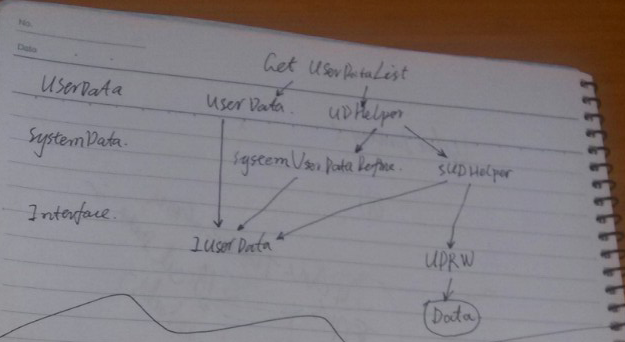 No.
Date
Get UserDataList
UserData
UserData.
UDHelper
SystemData.
SystemUserDataRefine.
SUDHelper
Interface.
IUserData
UDRW
Data